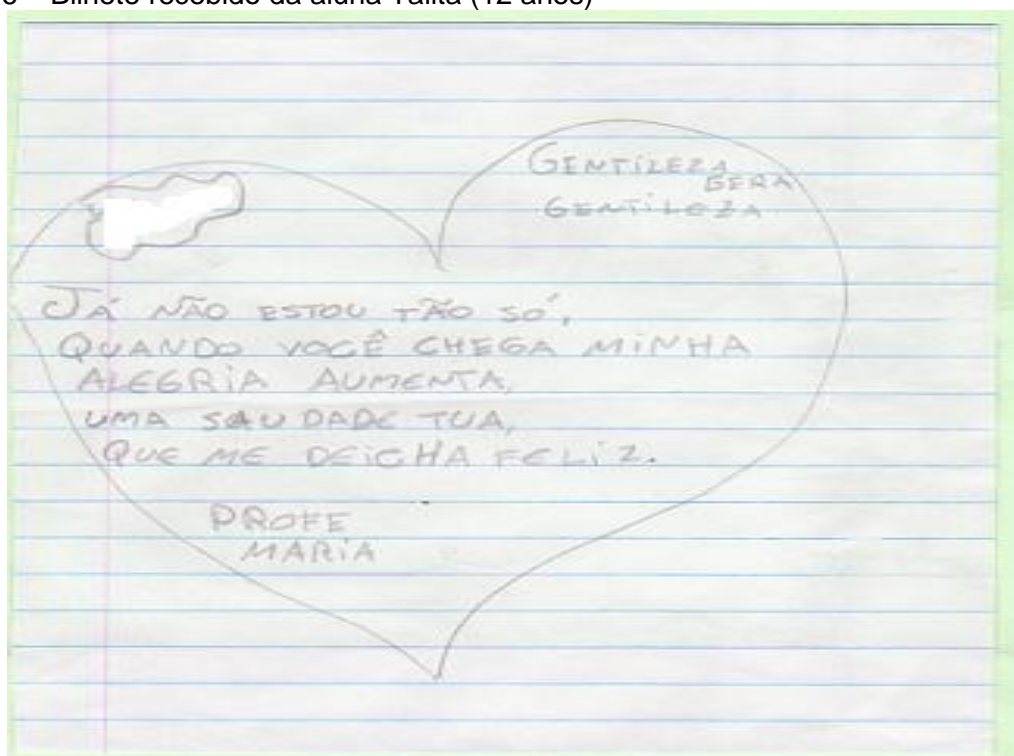 Bilhete recebido da aluna Talita (12 anos)
GENTILEZA
GERA
GENTILEZA
JÁ NÃO ESTOU TÃO SÓ,
QUANDO VOCÊ CHEGA MINHA
ALEGRIA AUMENTA,
UMA SAUDADE TUA,
QUE ME DEIGHA FELIZ.
PROFE
MARIA